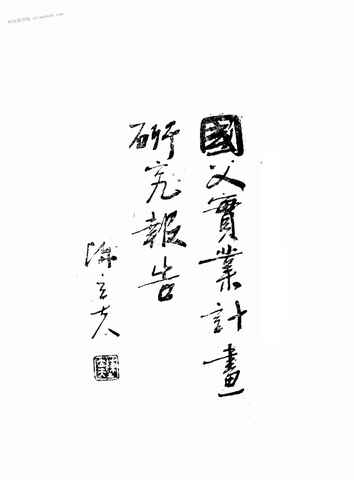 國父實業計畫
研究報告
陳立夫